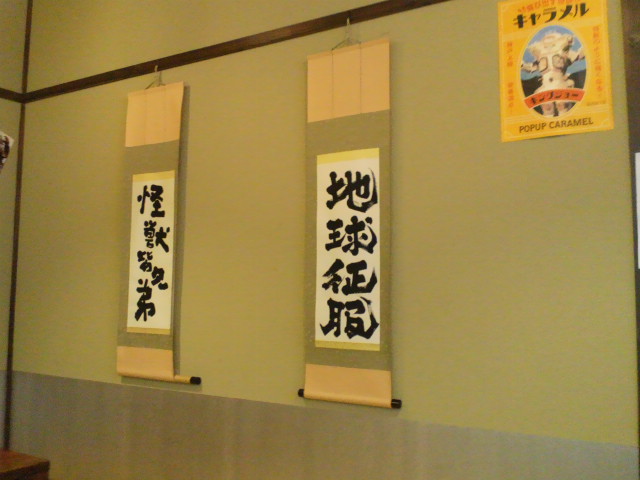 怪獣皆兄弟
地球征服
キャラメル
キングジョー
POPUP CARAMEL